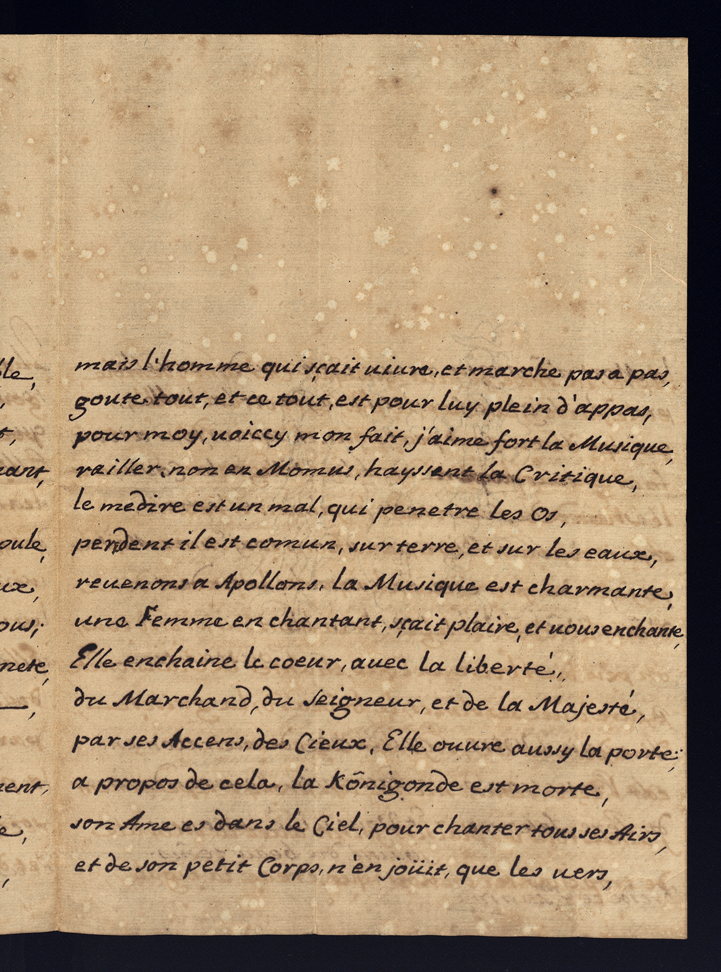 mais l'homme qui sçait uiure, et marche pas a pas,
goute tout, et ce tout, est pour luy plein d'appas,
pour moy, uoiccy mon fait, j'aime fort la Musique,
railler, non en Momus, hayssent la Critique,
le medire est un mal, qui penetre les Os,
pendent il est comun, sur terre, et sur les eaux,
reuenons a Apollons, la Musique est charmante,
une Femme en chantant, sçait plaire, et uous enchante,
Elle enchaine le coeur, auec la liberté,
du Marchand, du Seigneur, et de la Majesté,
par ses Accens, des Cieux, Elle ouure aussy la porte;
a propos de cela, la Kônigonde est morte,
son Ame es dans le Ciel, pour chanter tous ses Airs,
et de son petit Corps, n'en joüit, que les uers,